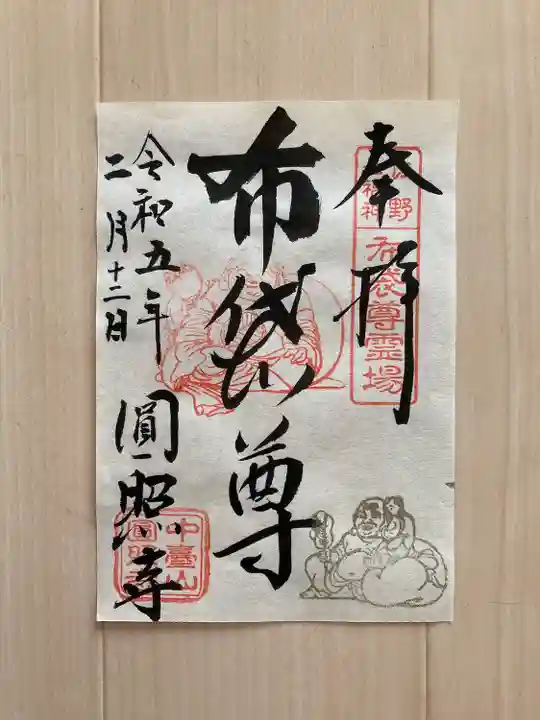 奉拝
野
福神
布袋尊霊場
布袋尊
令和五年
二月十二日
圓照寺
中臺山